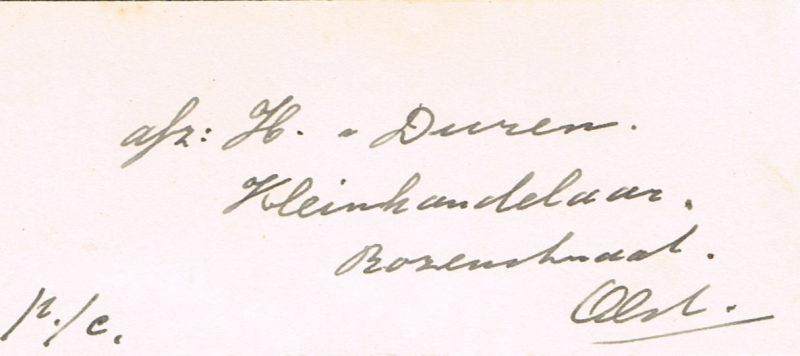 afz: H. v Duren.
Kleinhandelaar.
Rozenstraat.
Olst.
p./c.